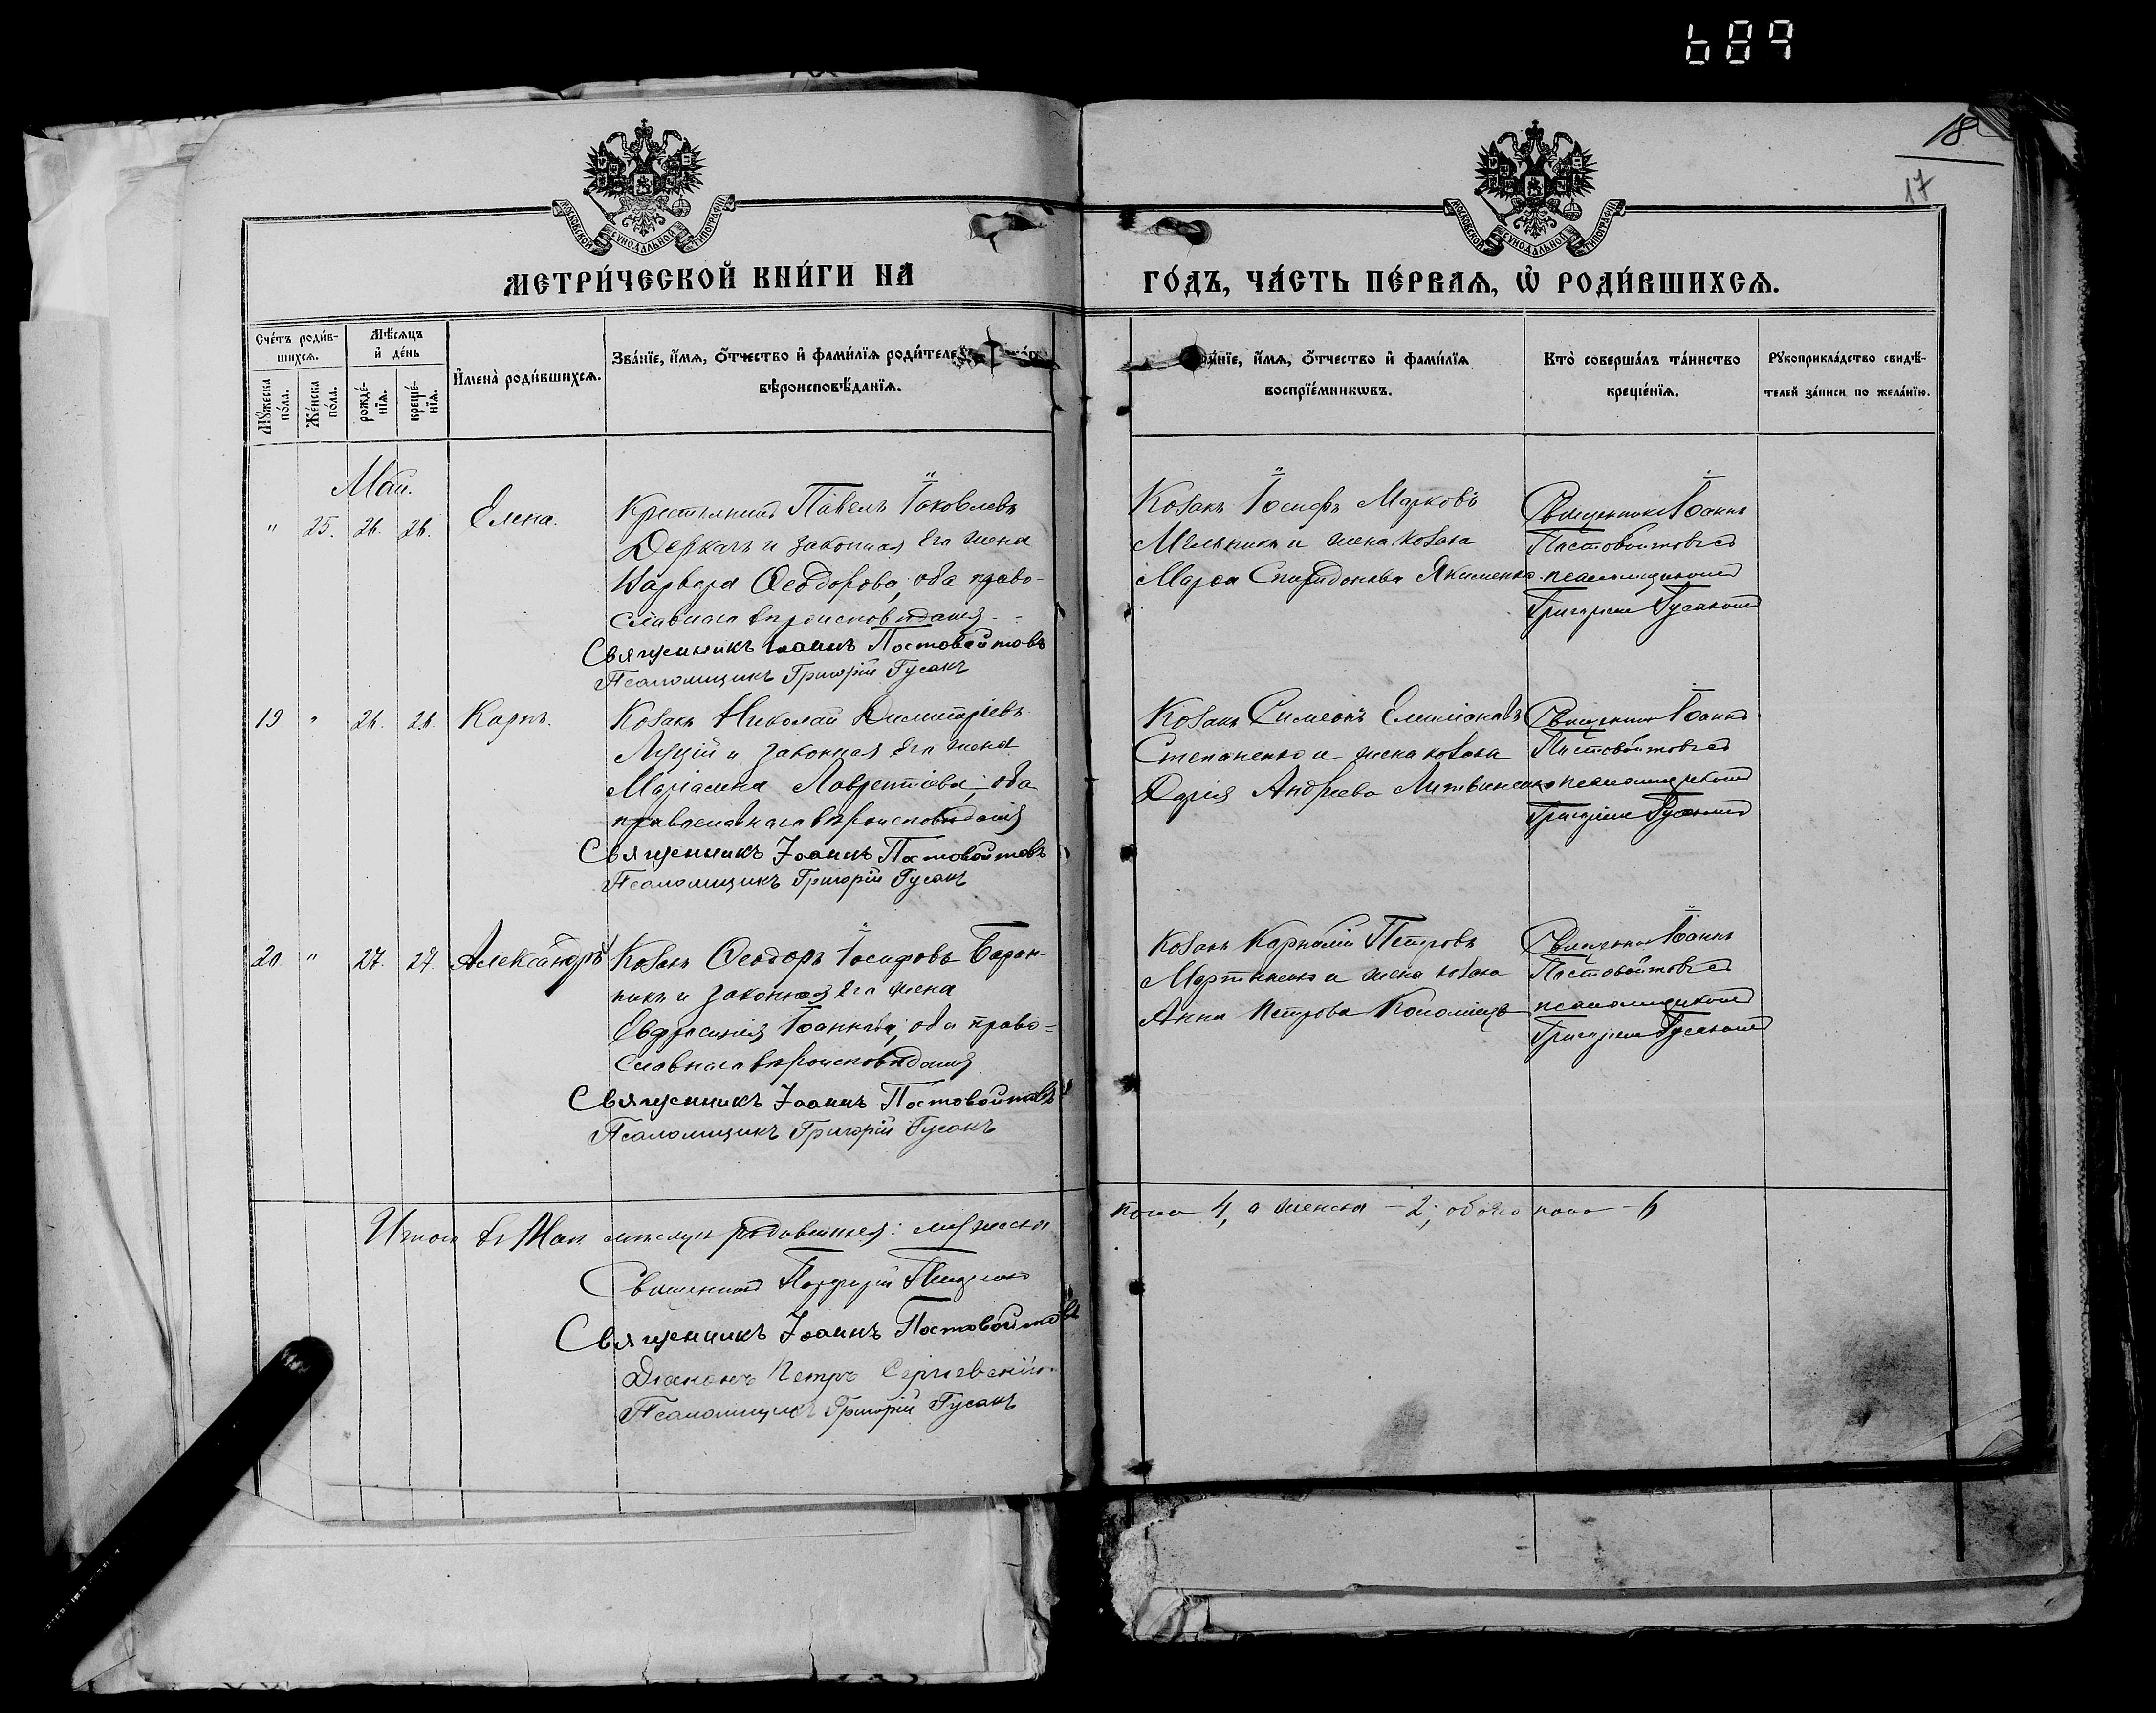 689
18
17
МОСКОВСКОЙ СѴНОДАЛЬНОЙ ТИПОГРАФІИ
МОСКОВСКОЙ СѴНОДАЛЬНОЙ ТИПОГРАФІИ
МЕТРИ́ЧЕСКОЙ КНИ́ГИ НА̀
ГО́ДЪ, ЧА́СТЬ ПЕ́РВАѦ, Ѡ҆ РОДИ́ВШИХСѦ.
Сче́тъ роди́в-
шихсѧ.
Мѣ́сѧцъ
и҆ де́нь
Мꙋ́жеска
по́ла.
Же́нска
пола.
рожде́-
нїѧ.
креще́-
нїѧ.
И҆мена̀ роди́вшихсѧ.
Зва́нїе, и҆́мѧ, ѻ҆́тчество и҆ фами́лїѧ роди́теле
вѣроисповѣ́данїѧ.
нїе, и҆́мѧ, ѻ҆́тчество и҆ фами́лїѧ
воспрїе́мникѡвъ.
Кто̀ соверша́лъ та́инство
креще́нїѧ.
Рꙋкоприкла́дство свидѣ́-
телей за́писи по жела́нїю.
Май.
" 25. 26. 26. Елена.
Крестьянинъ Павелъ Іаковлевъ
Деркачъ и законная его жена
Варвара Ѳеодорова, оба право-
славнаго вѣроисповѣданія
Священникъ Іоаннъ Постовойтовъ
Псаломщикъ Григорій Гусакъ
Козакъ Іосифъ Марковъ
Мельникъ и жена козака
Марѳа Спиридонова Якименко
Священникъ Іоаннъ
Постовойтовъ съ
псаломщикомъ
Григоріемъ Гусакомъ
19 " 26. 26. Карпъ.
Козакъ Николай Димитріевъ
и законная его жена
Маріамна Лаврентіева, оба
православнаго вѣроисповѣданія
Священникъ Іоаннъ Постовойтовъ
Псаломщикъ Григорій Гусакъ
Козакъ Симеонъ Емиліановъ
Степаненко и жена козака
Дарія Андреева Литвиненко
Священникъ Іоаннъ
Постовойтовъ съ
псаломщикомъ
Григоріемъ Гусакомъ
20 " 27. 27. Александръ
Козакъ Ѳеодоръ Іосифовъ Баран-
никъ и законная его жена
Евфросинія Іоаннова, оба право=
славнаго вѣроисповѣданія
Священникъ Іоаннъ Постовойтовъ
Псаломщикъ Григорій Гусакъ
Козакъ Корнилій Петровъ
Мартиненко и жена козака
Анна Петрова Коломіецъ
Священникъ Іоаннъ
Постовойтовъ съ
псаломщикомъ
Григоріемъ Гусакомъ
Итого въ Маѣ мѣсяцѣ родившихся: мужеска
пола 4, а женска – 2; обоего пола – 6
Священникъ Порфирій
Священникъ Іоаннъ Постовойтовъ
Діаконъ Петръ Сергіевскій
Псаломщикъ Григорій Гусакъ